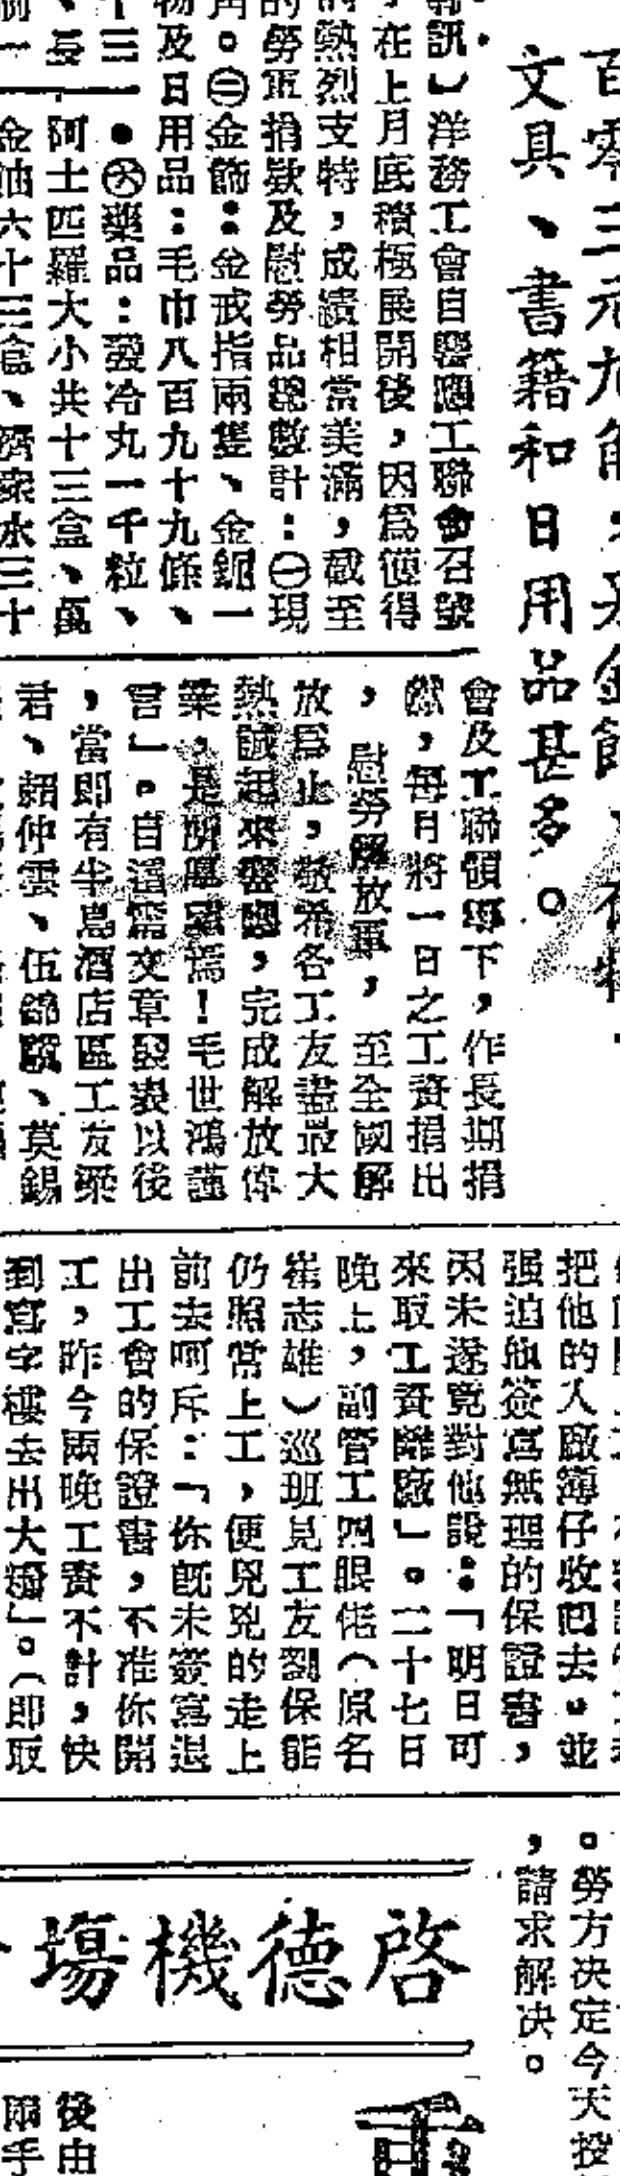 文具、書籍和日用品甚多。
訊」洋務工會自響應工聯會召號
,在上月底積極展開後,因為獲得
熱烈支持,成績相當美滿,截至
的勞軍捐款及慰勞品總數計:㊀現
角。㊂金飾:金戒指兩隻、金鈪一
物及日用品:毛巾八百九十九條、
十三●㊅藥品:發冷丸一千粒、
、長 阿士匹羅大小共十三盒、萬
金油六十三盒、濟衆水三十
會及工聯領導下,作長期捐
獻,每月將一日之工資捐出
,慰勞解放軍,至全國解
放為止,敬希各工友盡最大
熱誠起來響應,完成解放偉
業,是所厚望焉!毛世鴻謹
言」。自這篇文章發表以後
,當即有半島酒店區工友梁
君、賴仲雲、伍錦、莫錫
把他的入廠簿仔收回去。並
强迫他簽寫無理的保證書,
因未遂竟對他說:「明日可
來取工資離廠」。二十七日
晚上,副管工四眼佬(原名
崔志雄)巡班見工友劉保能
仍照常上工,便兇兇的走上
前去呵斥:「你既未簽寫退
出工會的保證書,不准你開
工,昨今兩晚工資不計,快
到寫字樓去出大糧」。(即取
。勞方决定今天投
,請求解决。
啓德機塲
後由
兩手